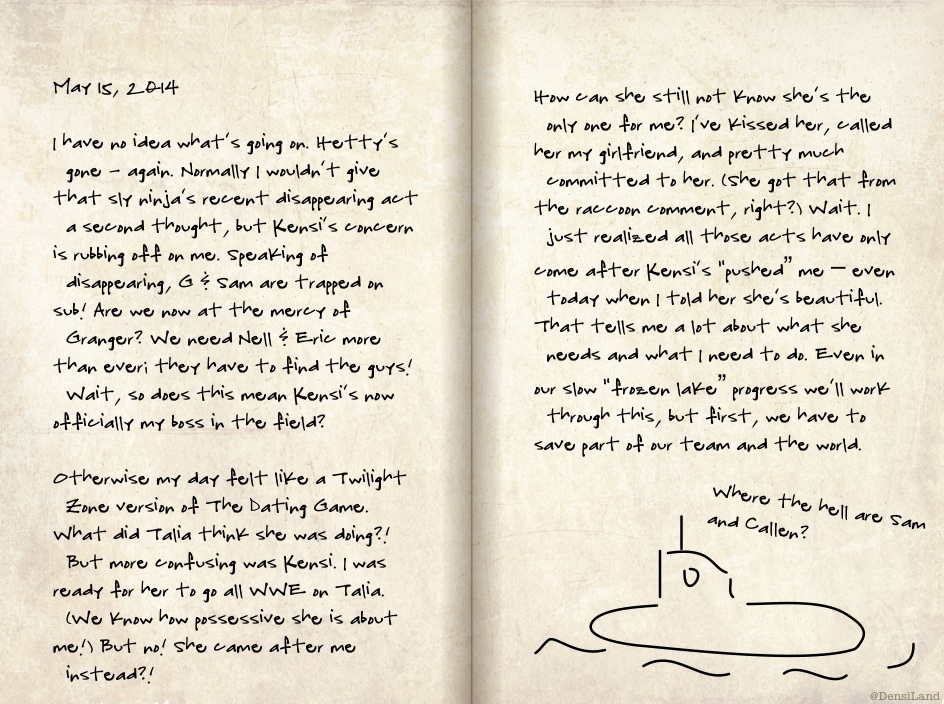 May 15, 2014
I have no idea what's going on. Hetty's
gone – again. Normally I wouldn't give
that sly ninja's recent disappearing act
a second thought, but Kensi's concern
is rubbing off on me. Speaking of
disappearing, G & Sam are trapped on
sub! Are we now at the mercy of
Granger? We need Nell & Eric more
than ever; they have to find the guys!
Wait, so does this mean Kensi's now
officially my boss in the field?
Otherwise my day felt like a Twilight
Zone version of The Dating Game.
What did Talia think she was doing?!
But more confusing was Kensi. I was
ready for her to go all WWE on Talia.
(We know how possessive she is about
me!) But no! She came after me
instead?!
How can she still not know she's the
only one for me? I've kissed her, called
her my girlfriend, and pretty much
committed to her. (She got that from
the raccoon comment, right?) Wait. I
just realized all those acts have only
come after Kensi's "pushed" me – even
today when I told her she's beautiful.
That tells me a lot about what she
needs and what I need to do. Even in
our slow "frozen lake" progress we'll work
through this, but first, we have to
save part of our team and the world.
Where the hell are Sam
and Callen?
@DensiLand